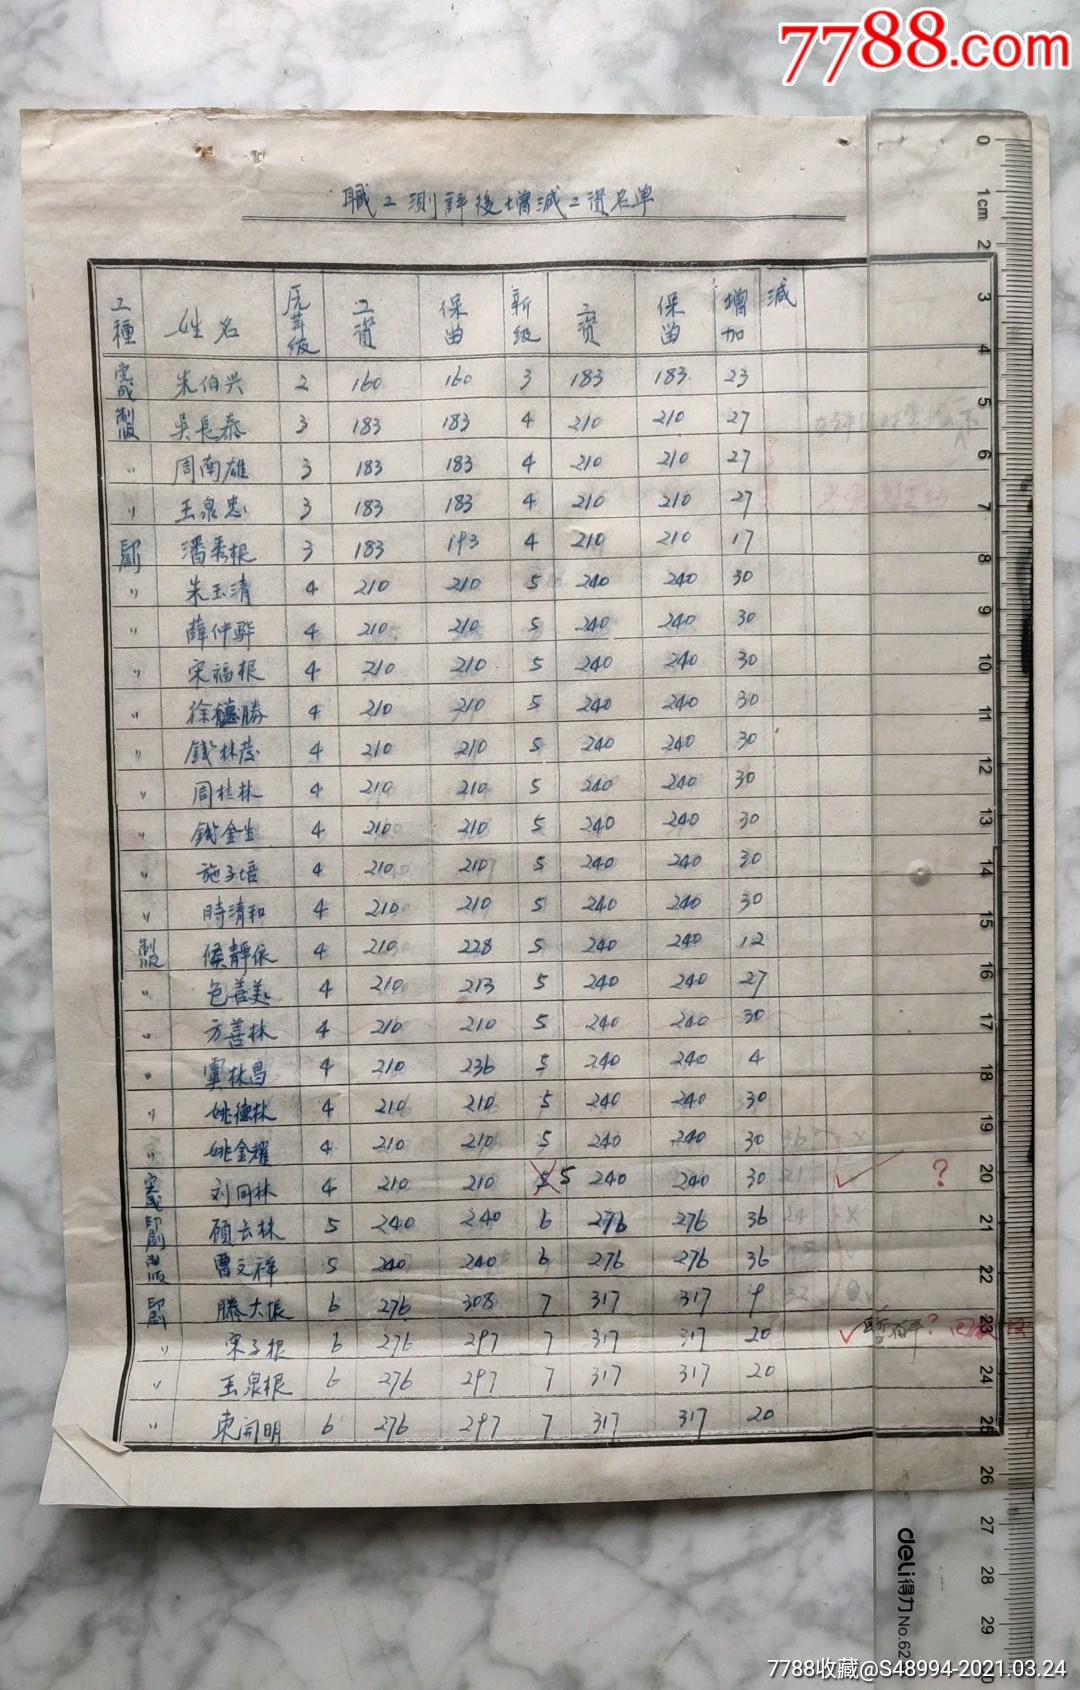 7788.com
職工測評後增減工資名单
工種 姓名 原等級 工資 保留 新級 工資 保留 增加 減
完成 朱伯兴 2 160 160 3 183 183 23
製版 吳長泰 3 183 183 4 210 210 27
〃 周南雄 3 183 183 4 210 210 27
〃 王泉忠 3 183 183 4 210 210 27
印刷 潘秀根 3 183 193 4 210 210 17
〃 朱玉清 4 210 210 5 240 240 30
〃 薛仲驊 4 210 210 5 240 240 30
〃 宋福根 4 210 210 5 240 240 30
〃 徐德勝 4 210 210 5 240 240 30
〃 錢林茂 4 210 210 5 240 240 30
〃 周桂林 4 210 210 5 240 240 30
〃 錢金生 4 210 210 5 240 240 30
〃 施子培 4 210 210 5 240 240 30
〃 時清和 4 210 210 5 240 240 30
製版 侯靜依 4 210 228 5 240 240 12
〃 包善美 4 210 213 5 240 240 27
〃 方善林 4 210 210 5 240 240 30
〃 林昌 4 210 236 5 240 240 4
〃 姚德林 4 210 210 5 240 240 30
〃 姚金耀 4 210 210 5 240 240 30
完成 刘同林 4 210 210 5 240 240 30 ?
印刷 顾云林 5 240 240 6 276 276 36
製版 曹文祥 5 240 240 6 276 276 36
印刷 滕大振 6 276 308 7 317 317 9
〃 宋子根 6 276 297 7 317 317 20
〃 王泉根 6 276 297 7 317 317 20
〃 東開明 6 276 297 7 317 317 20
0
1cm
2
3
4
5
6
7
8
9
10
11
12
13
14
15
16
17
18
19
20
21
22
23
24
25
26
27
28
29
deli得力 No.62
7788收藏@S48994-2021.03.24